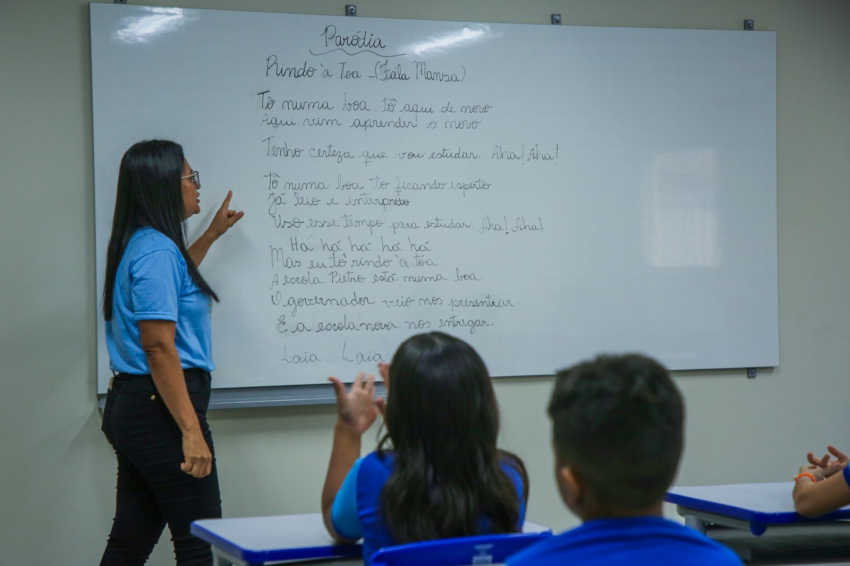 Paródia
Rindo à Toa - (Fala Mansa)
Tô numa boa tô aqui de novo
Aqui vim aprender o novo
Tenho certeza que vou estudar. Aha! Aha!
Tô numa boa to ficando esperto
Já leio e interpreto
Uso esse tempo para estudar. Aha! Aha!
Há há há há há
Mas eu tô rindo à toa
A escola Pietro está numa boa
O governador veio nos presentear.
E a escola nova nos entregar.
Laia Laia